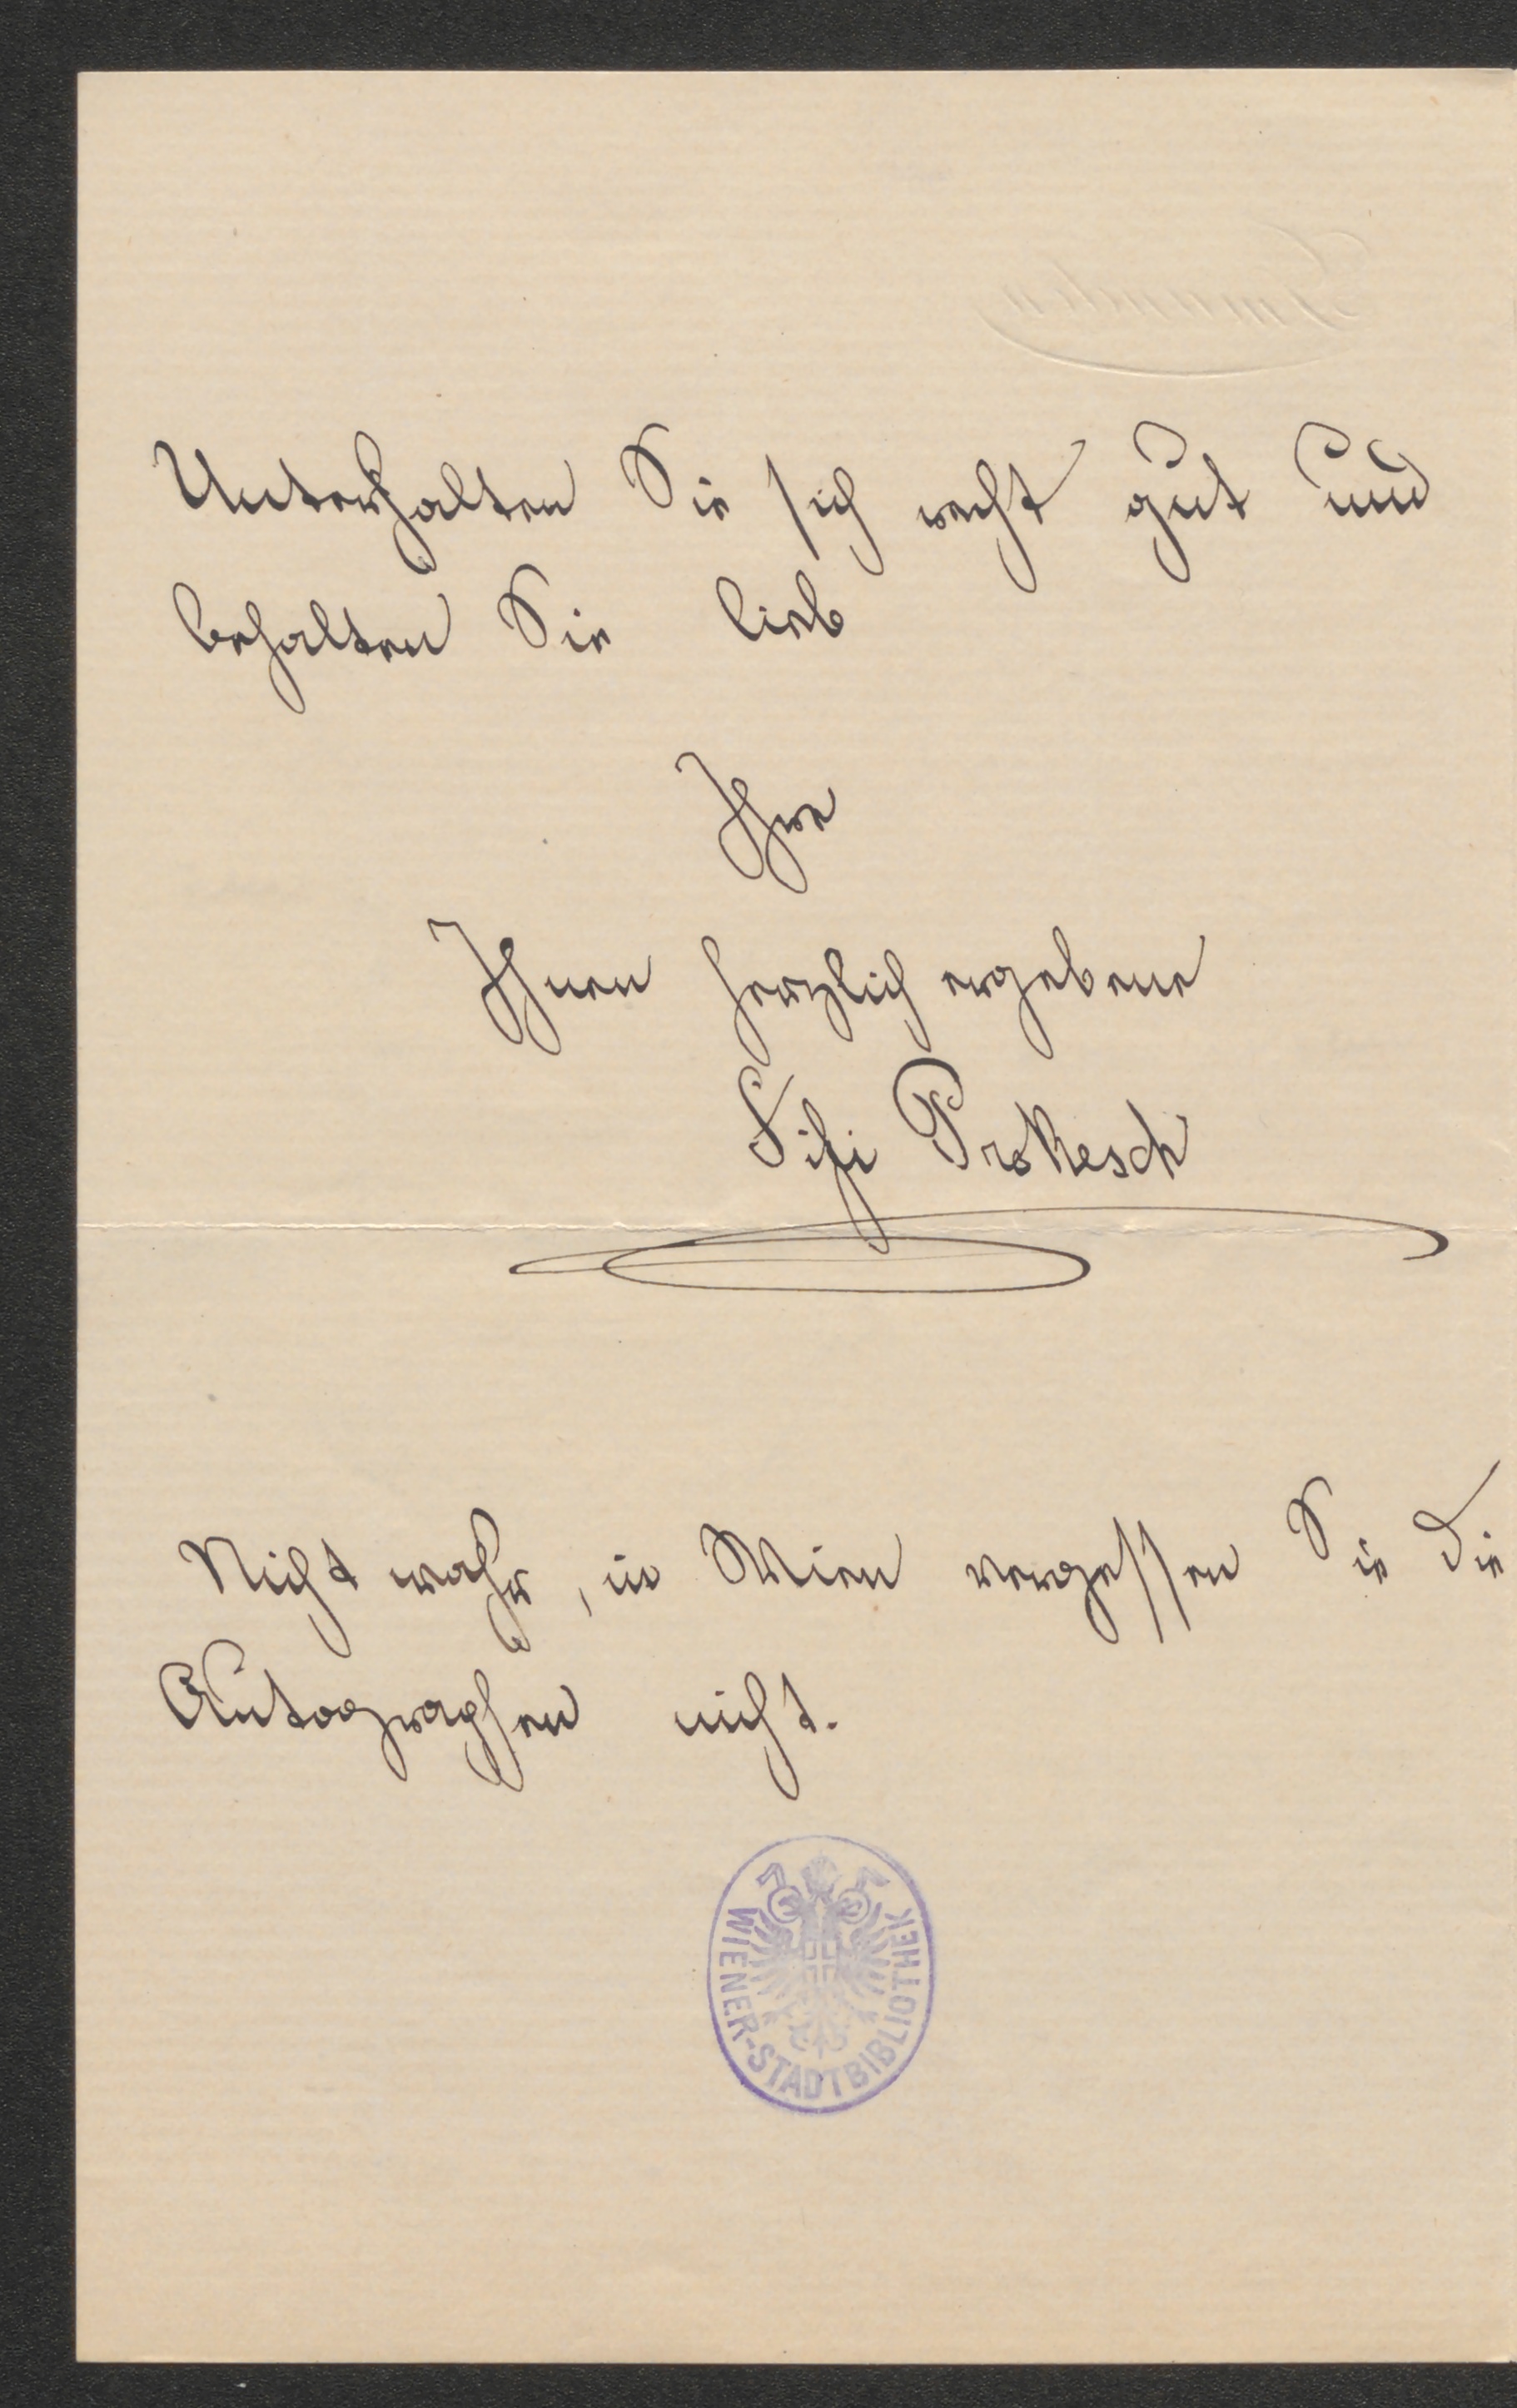 Gmunden
Unterhalten Sie sich recht gut und
behalten Sie lieb
Ihre
Ihnen herzlich ergebene
Fifi Prokesch
Nicht wahr, in Wien vergessen Sie die
Autographen nicht.
WIENER-STADTBIBLIOTHEK